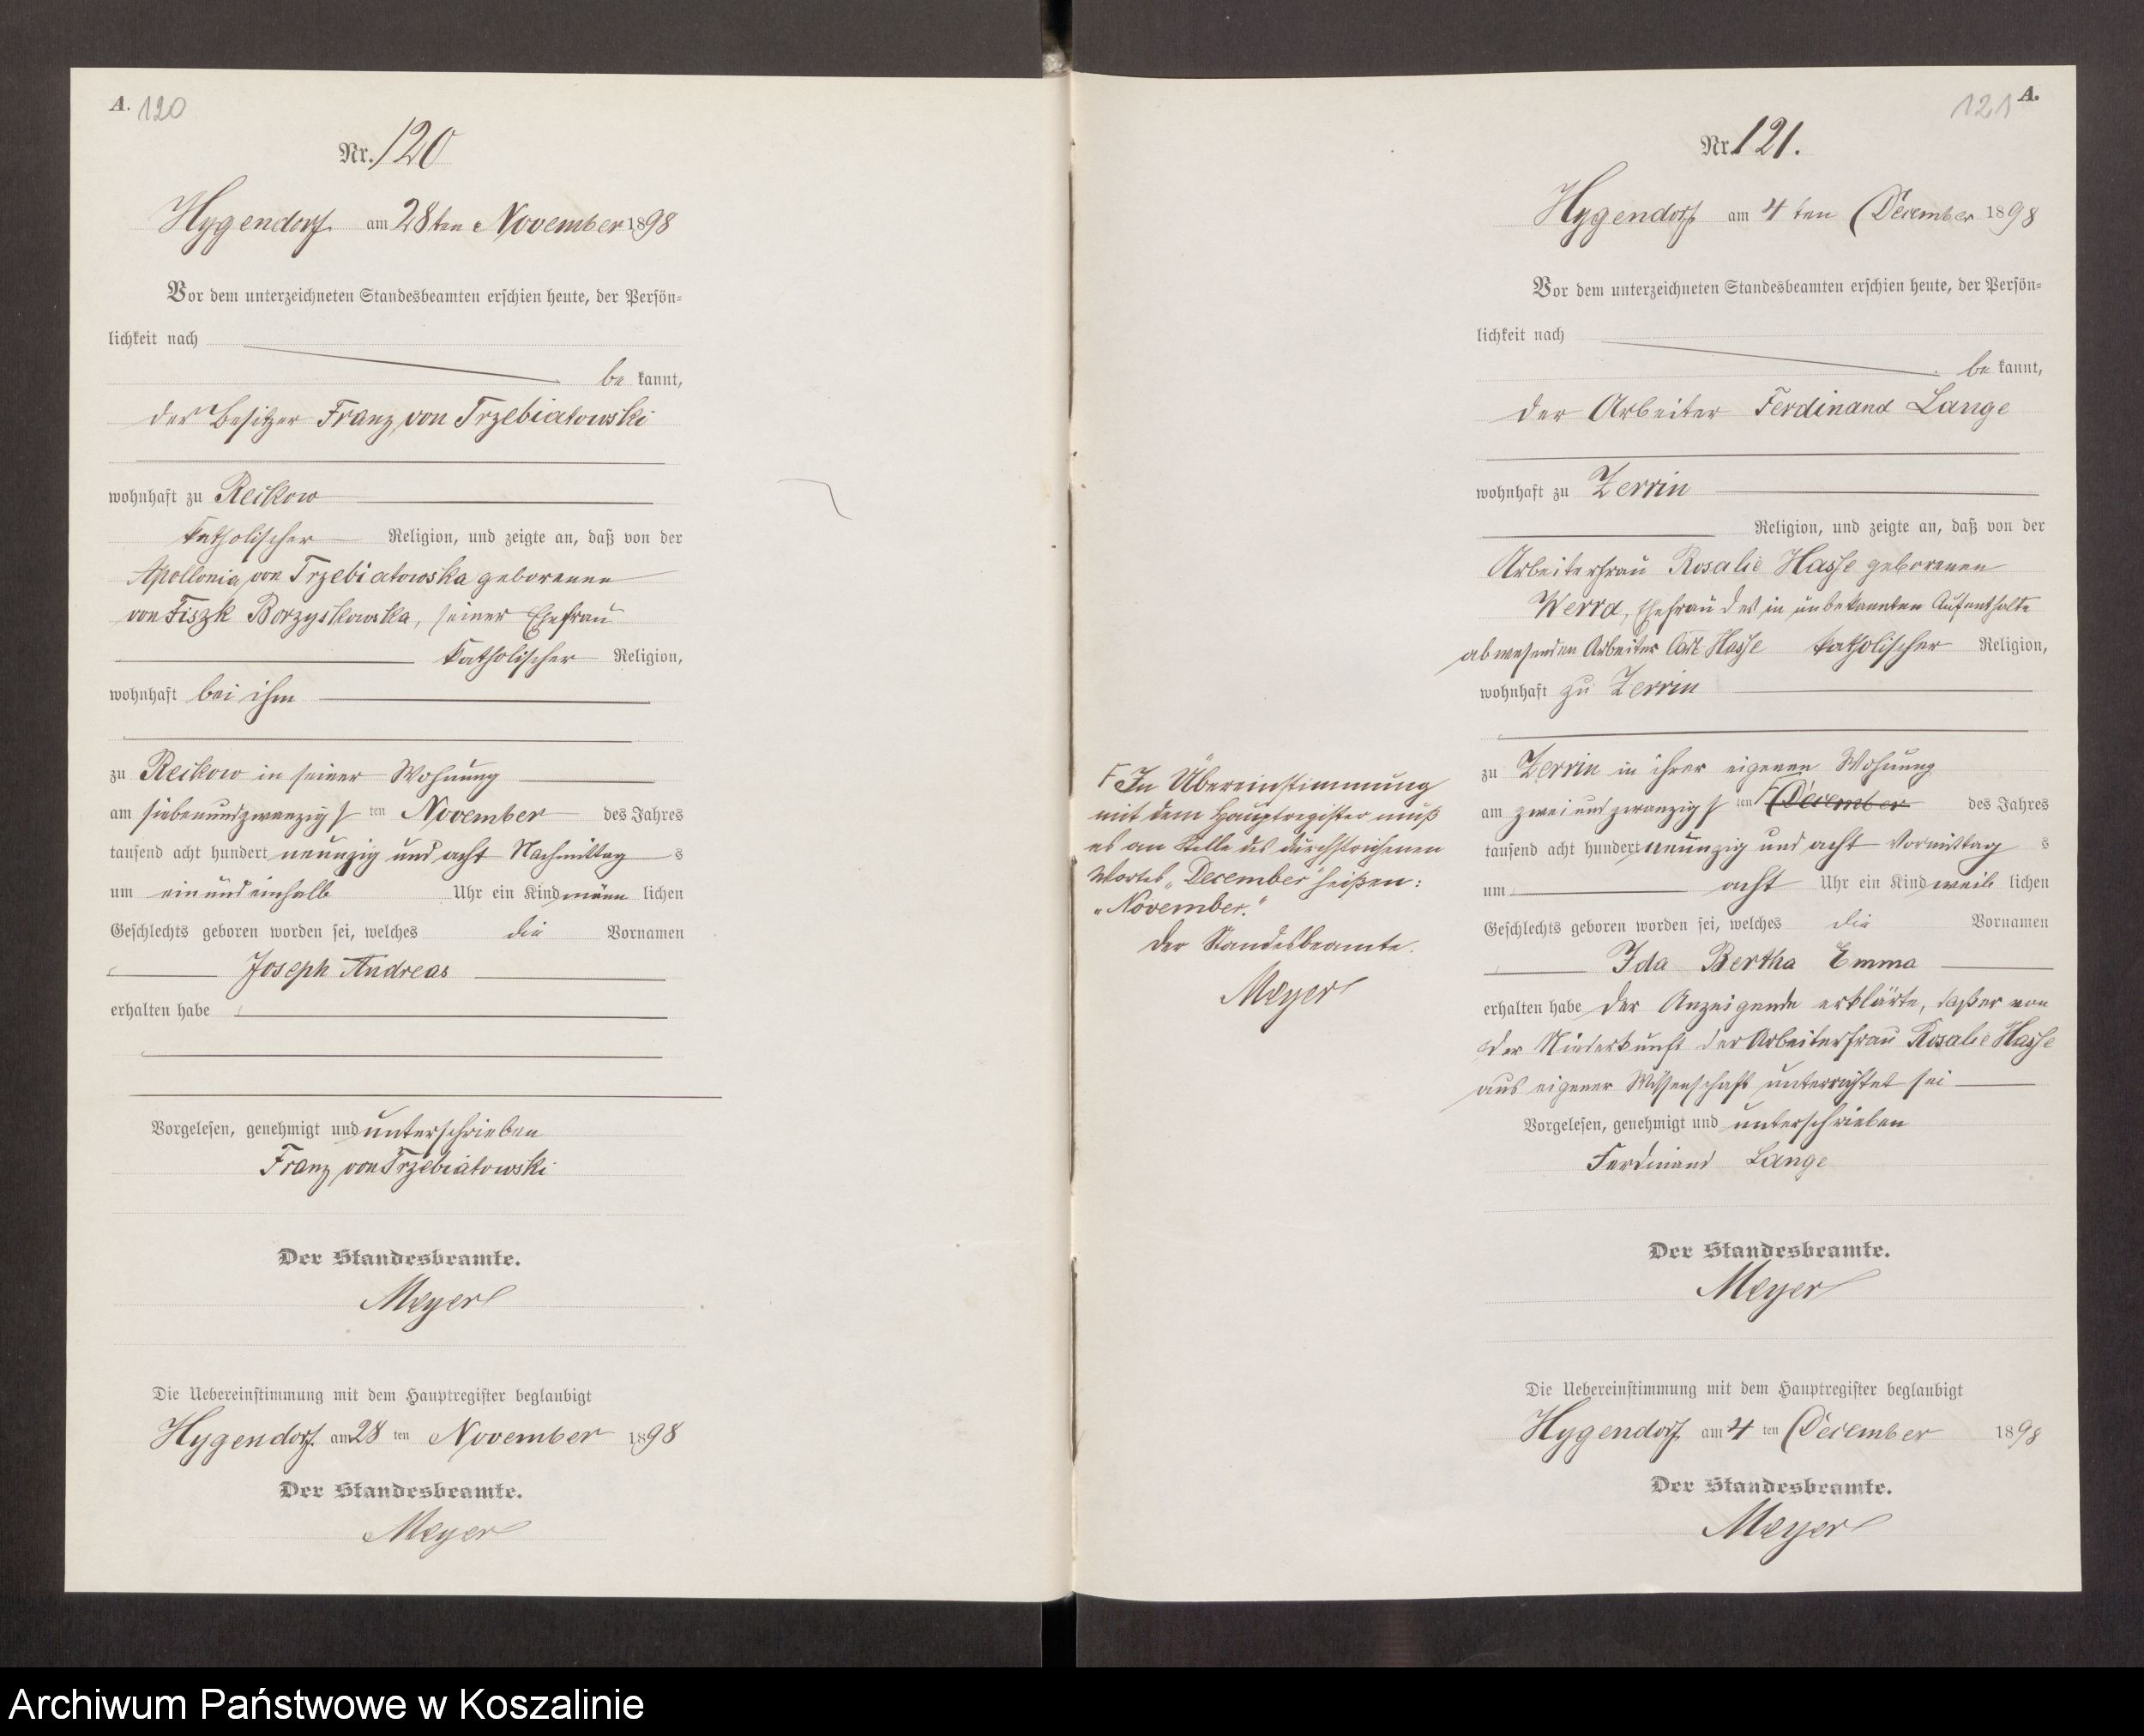 A. 120
Nr. 120
Hygendorf am 28ten November 1898
Vor dem unterzeichneten Standesbeamten erschien heute, der Persön=
lichkeit nach
be kannt,
der Besitzer Franz von Trzebiatowski
wohnhaft zu Reikow
katholischer Religion, und zeigte an, daß von der
Apollonia von Trzebiatowska geborenen
von Fiszk Borzyskowska, seiner Ehefrau
katholischer Religion,
wohnhaft bei ihm
zu Reikow in seiner Wohnung
am siebenundzwanzigsten November des Jahres
tausend acht hundert neunzig und acht Nachmittags
um ein und einhalb Uhr ein Kind männlichen
Geschlechts geboren worden sei, welches die Vornamen
Joseph Andreas
erhalten habe
Vorgelesen, genehmigt und unterschrieben
Franz von Trzebiatowski
Der Standesbeamte.
Meyer
Die Uebereinstimmung mit dem Hauptregister beglaubigt
Hygendorf am 28 ten November 1898
Der Standesbeamte.
Meyer
121 A.
Nr. 121.
Hygendorf am 4 ten December 1898
Vor dem unterzeichneten Standesbeamten erschien heute, der Persön=
lichkeit nach
be kannt,
der Arbeiter Ferdinand Lange
wohnhaft zu Zerrin
Religion, und zeigte an, daß von der
Arbeiterfrau Rosalie Hasse geborenen
Werra, Ehefrau des in unbekannten Aufenthalte
abwesenden Arbeiter Carl Hasse katholischer Religion,
wohnhaft zu Zerrin
zu Zerrin in ihrer eigenen Wohnung
am zwei und zwanzigsten December des Jahres
tausend acht hundert neunzig und acht Vormittags
um acht Uhr ein Kind weiblichen
Geschlechts geboren worden sei, welches die Vornamen
Ida Bertha Emma
erhalten habe der Anzeigende erklärte, daß er von
der Niederkunft der Arbeiterfrau Rosalie Hasse
aus eigener Wissenschaft unterrichtet sei
Vorgelesen, genehmigt und unterschrieben
Ferdinand Lange
Der Standesbeamte.
Meyer
Die Uebereinstimmung mit dem Hauptregister beglaubigt
Hygendorf am 4 ten December 1898
Der Standesbeamte.
Meyer
F In Übereinstimmung
mit dem Hauptregister muß
es an Stelle des durchstrichenen
Wortes „December" heißen:
„November."
Der Standesbeamte.
Meyer
Archiwum Państwowe w Koszalinie